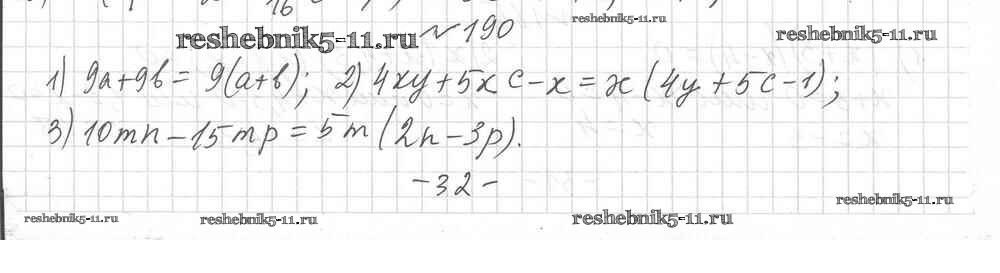 16
reshebnik5-11.ru
reshebnik5-11.ru № 190 reshebnik5-11.ru
1) 9a+9b = 9(a+b); 2) 4xy+5xc-x = x(4y+5c-1);
3) 10mn-15mp = 5m(2n-3p).
-32-
reshebnik5-11.ru
reshebnik5-11.ru reshebnik5-11.ru reshebnik5-11.ru